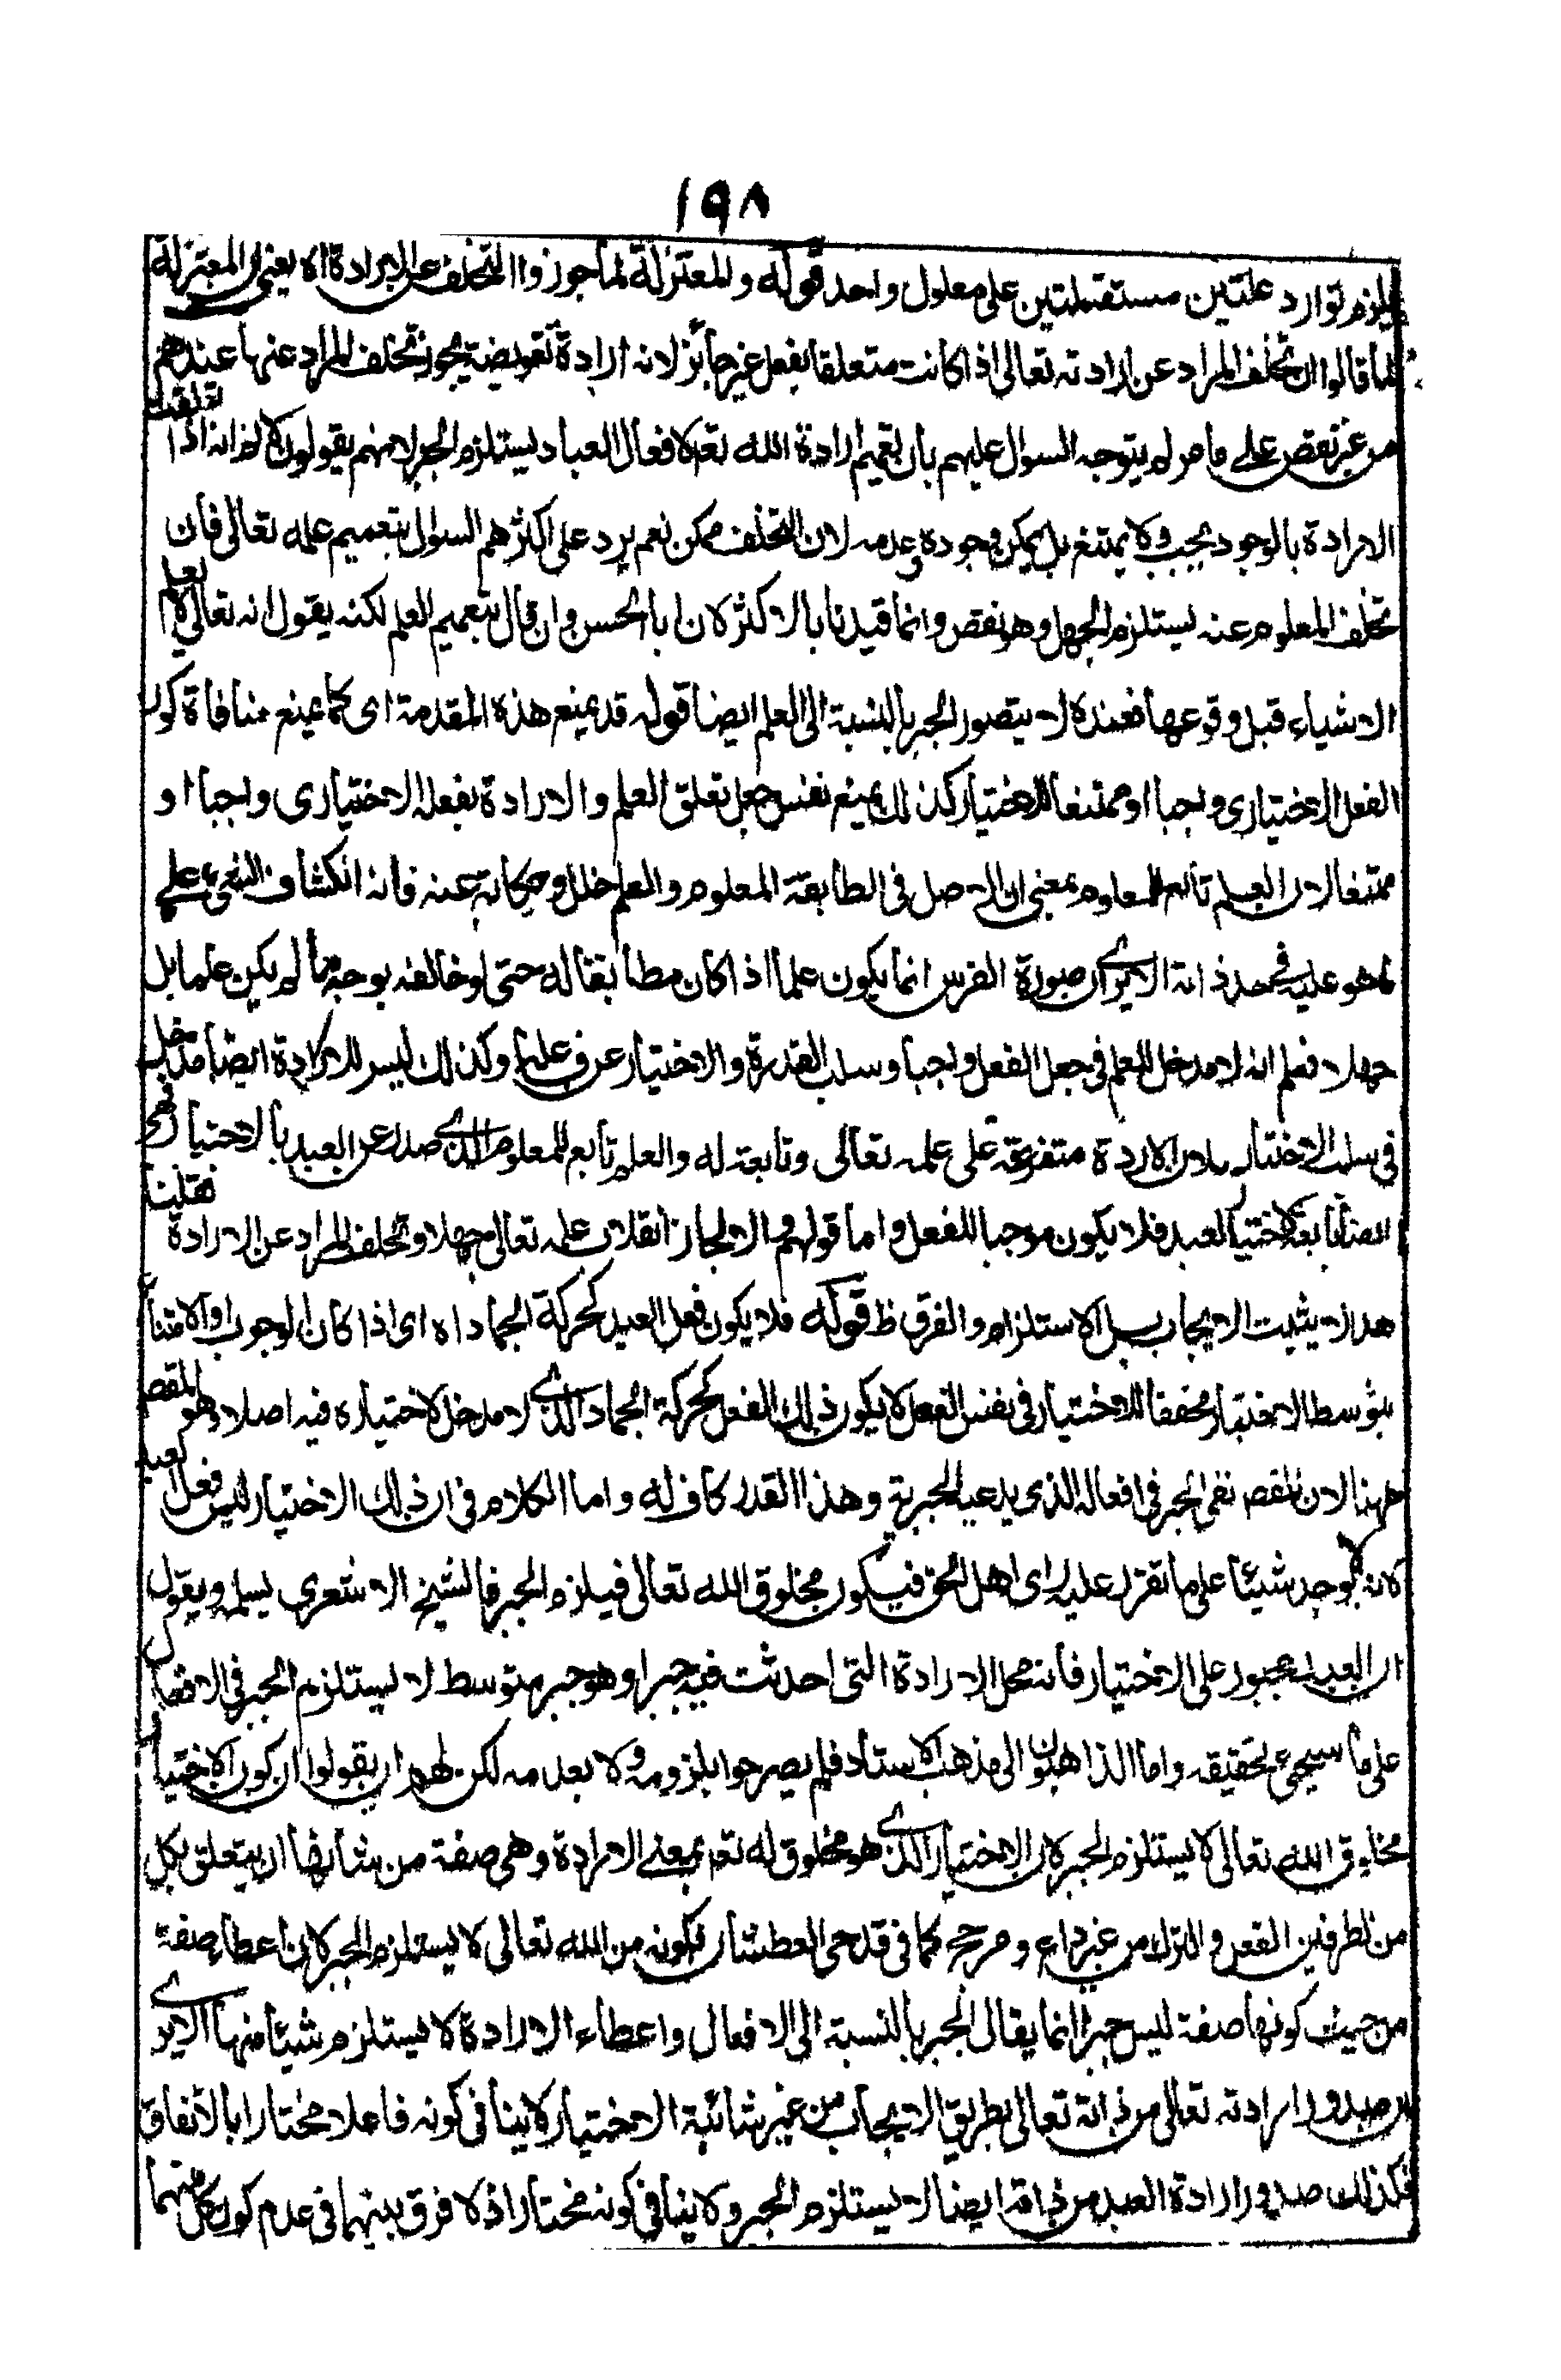 ١٩٨
يلزم توارد علتين مستقلتين على معلول واحد قوله والمعتزلة لما جوزوا التخلف عن الارادة اه يعنى ان المعتزلة
لما قالوا ان تخلف المراد عن ارادته تعالى اذا كانت متعلقا بفعل غير جائز لانه ارادة تفويضية يجوز تخلف المراد عنها عندهم
من غير نقص على ما مر لم يتوجه السوال عليهم بان تعميم ارادة الله تعا لافعال العباد يستلزم الجبر لانهم يقولون لا لزم انه اذا تعلقت
الارادة بالوجود يجب ولا يمتنع بل يمكن وجوده وعدمه لان التخلف ممكن نعم يرد على اكثرهم السوال بتعميم علمه تعالى فان
تخلف المعلوم عنه يستلزم الجهل وهو نقص وانما قيدنا بالاكثر لان ابا الحسن وان قال بتعميم العلم لكنه يقول انه تعالى لا يعلم
الاشياء قبل وقوعها فعنده لا يتصور الجبر بالنسبة الى العلم ايضا قوله قد يمنع هذه المقدمة اى كما يمنع منافاة كون
الفعل الاختيارى واجبا او ممتنعا للاختيار كذلك يمنع نفس جعل تعلق العلم والارادة بفعله الاختيارى واجبا او
ممتنعا لان العلم تابع للمعلوم بمعنى ان الاصل فى المطابقة المعلوم والعلم ظل وحكاية عنه فانه انكشاف الشئ على
ما هو عليه فى حد ذاته الا يرى ان صورة الفرس انما يكون علما اذا كان مطابقا له حتى لو خالفه بوجه ما لم يكن علما بل
جهلا فعلم انه لا مدخل للعلم فى جعل الفعل واجبا وسلب القدرة والاختيار عن فاعله وكذلك ليس للارادة ايضا مدخل
فى سلب الاختيار لان الارادة متفرعة على علمه تعالى وتابعة له والعلم تابع للمعلوم الذى صدر عن العبد بالاختيار فهى
ايضا تابعة لاختيار العبد فلا يكون موجبا للفعل واما قولهم والا لجاز انقلاب علمه تعالى جهلا وتخلف المراد عن الارادة فقلنا
هذا لا يثبت الايجاب بل الاستلزام والفرق ظ قوله فلا يكون فعل العبد كحركة الجماد اه اى اذا كان الوجوب او الامتناع
بتوسط الاختيار محققا للاختيار فى نفس الفعل لا يكون ذلك الفعل كحركة الجماد الذى لا مدخل لاختياره فيه اصلا وهو المقص
ههنا لان المقص نفى الجبر فى افعاله الذى يدعيه الجبرية وهذا القدر كاف له واما الكلام فى ان ذلك الاختيار ليس فعل العبد
لانه لا يوجد شيئا على ما تقرر عليه راى اهل الحق فيكون مخلوق الله تعالى فيلزم الجبر فالشيخ الاشعرى يسلمه ويقول
ان العبد مجبور على الاختيار فانه محل الارادة التى احدثت فيه جبرا وهو جبر متوسط لا يستلزم الجبر فى الافعال
على ما سيجىء تحقيقه واما الذاهبون الى مذهب الاستاد فلم يصرحوا بلزومه ولا بعدمه لكن لهم ان يقولوا ان كون الاختيار
مخلوق الله تعالى لا يستلزم الجبر لان الاختيار الذى هو مخلوق له تعا بمعنى الارادة وهى صفة من شانها ان يتعلق بكل
من الطرفين الفعل والترك من غير داع ومرجح كما فى قدحى العطشان فكونه من الله تعالى لا يستلزم الجبر لان اعطاء صفة
من حيث كونها صفة ليس جبرا انما يقال الجبر بالنسبة الى الافعال واعطاء الارادة لا يستلزم شيئا منها الا يرى
ان صدور ارادته تعالى من ذاته تعالى بطريق الايجاب من غير شائبة الاختيار لا ينافى كونه فاعلا مختارا بالاتفاق
فكذلك صدور ارادة العبد من ذاته ايضا لا يستلزم الجبر ولا ينافى كونه مختارا اذ لا فرق بينهما فى عدم كون كل منهما